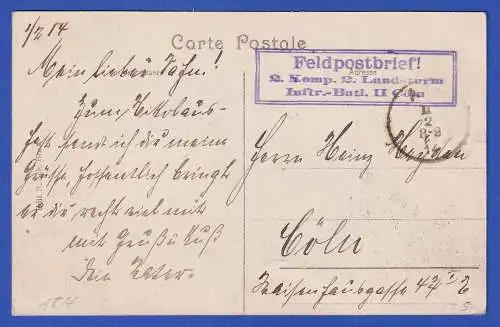 1/2 14
Carte Postale
Feldpostbrief!
2. Komp. 2. Landsturm
Inftr.-Batl. II Cöln
Adresse
Mein lieber Sohn!
Zum Nikolaus-
fest sendt ich dir meine
Grüße, hoffentlich bringt
er dir recht viel mit
mit Gruß u. Kuß
Dein Vater
Herrn Heinz
Cöln
Waisenhausgasse 42
1914